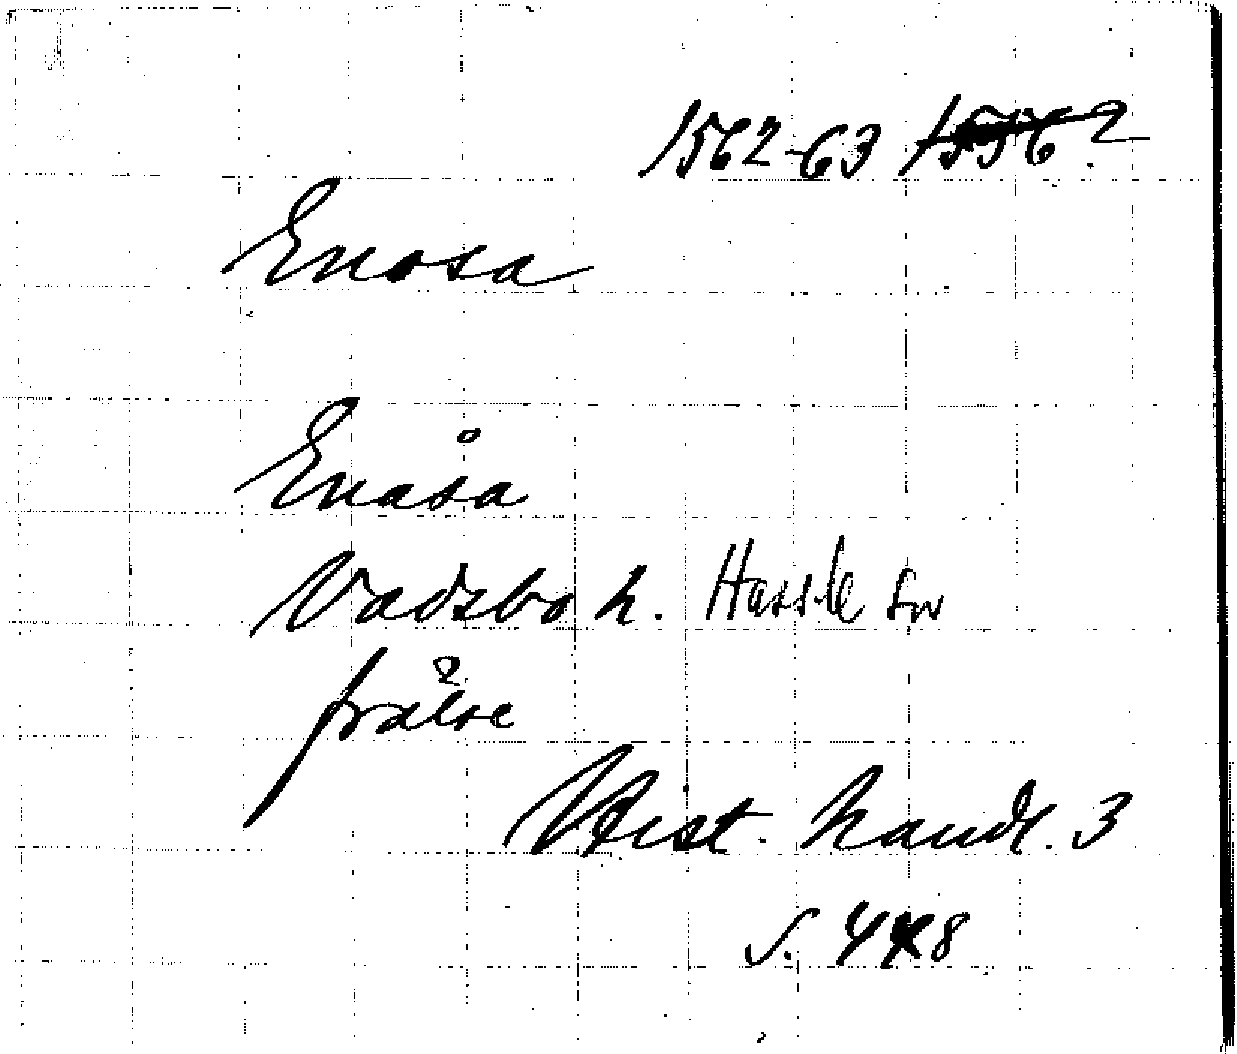 1562-63
Enosa
Enåsa
Vadsbo h. Hassle sn
frälse
Väst. handl. 3
s. 448